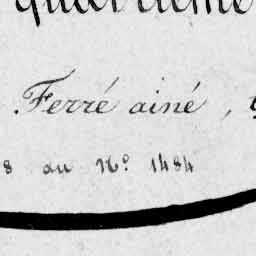 Ferré ainé,
8 au N° 1484